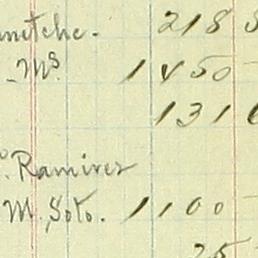 218
Ms 1450
131
Ramirez
M. Soto. 1100
25